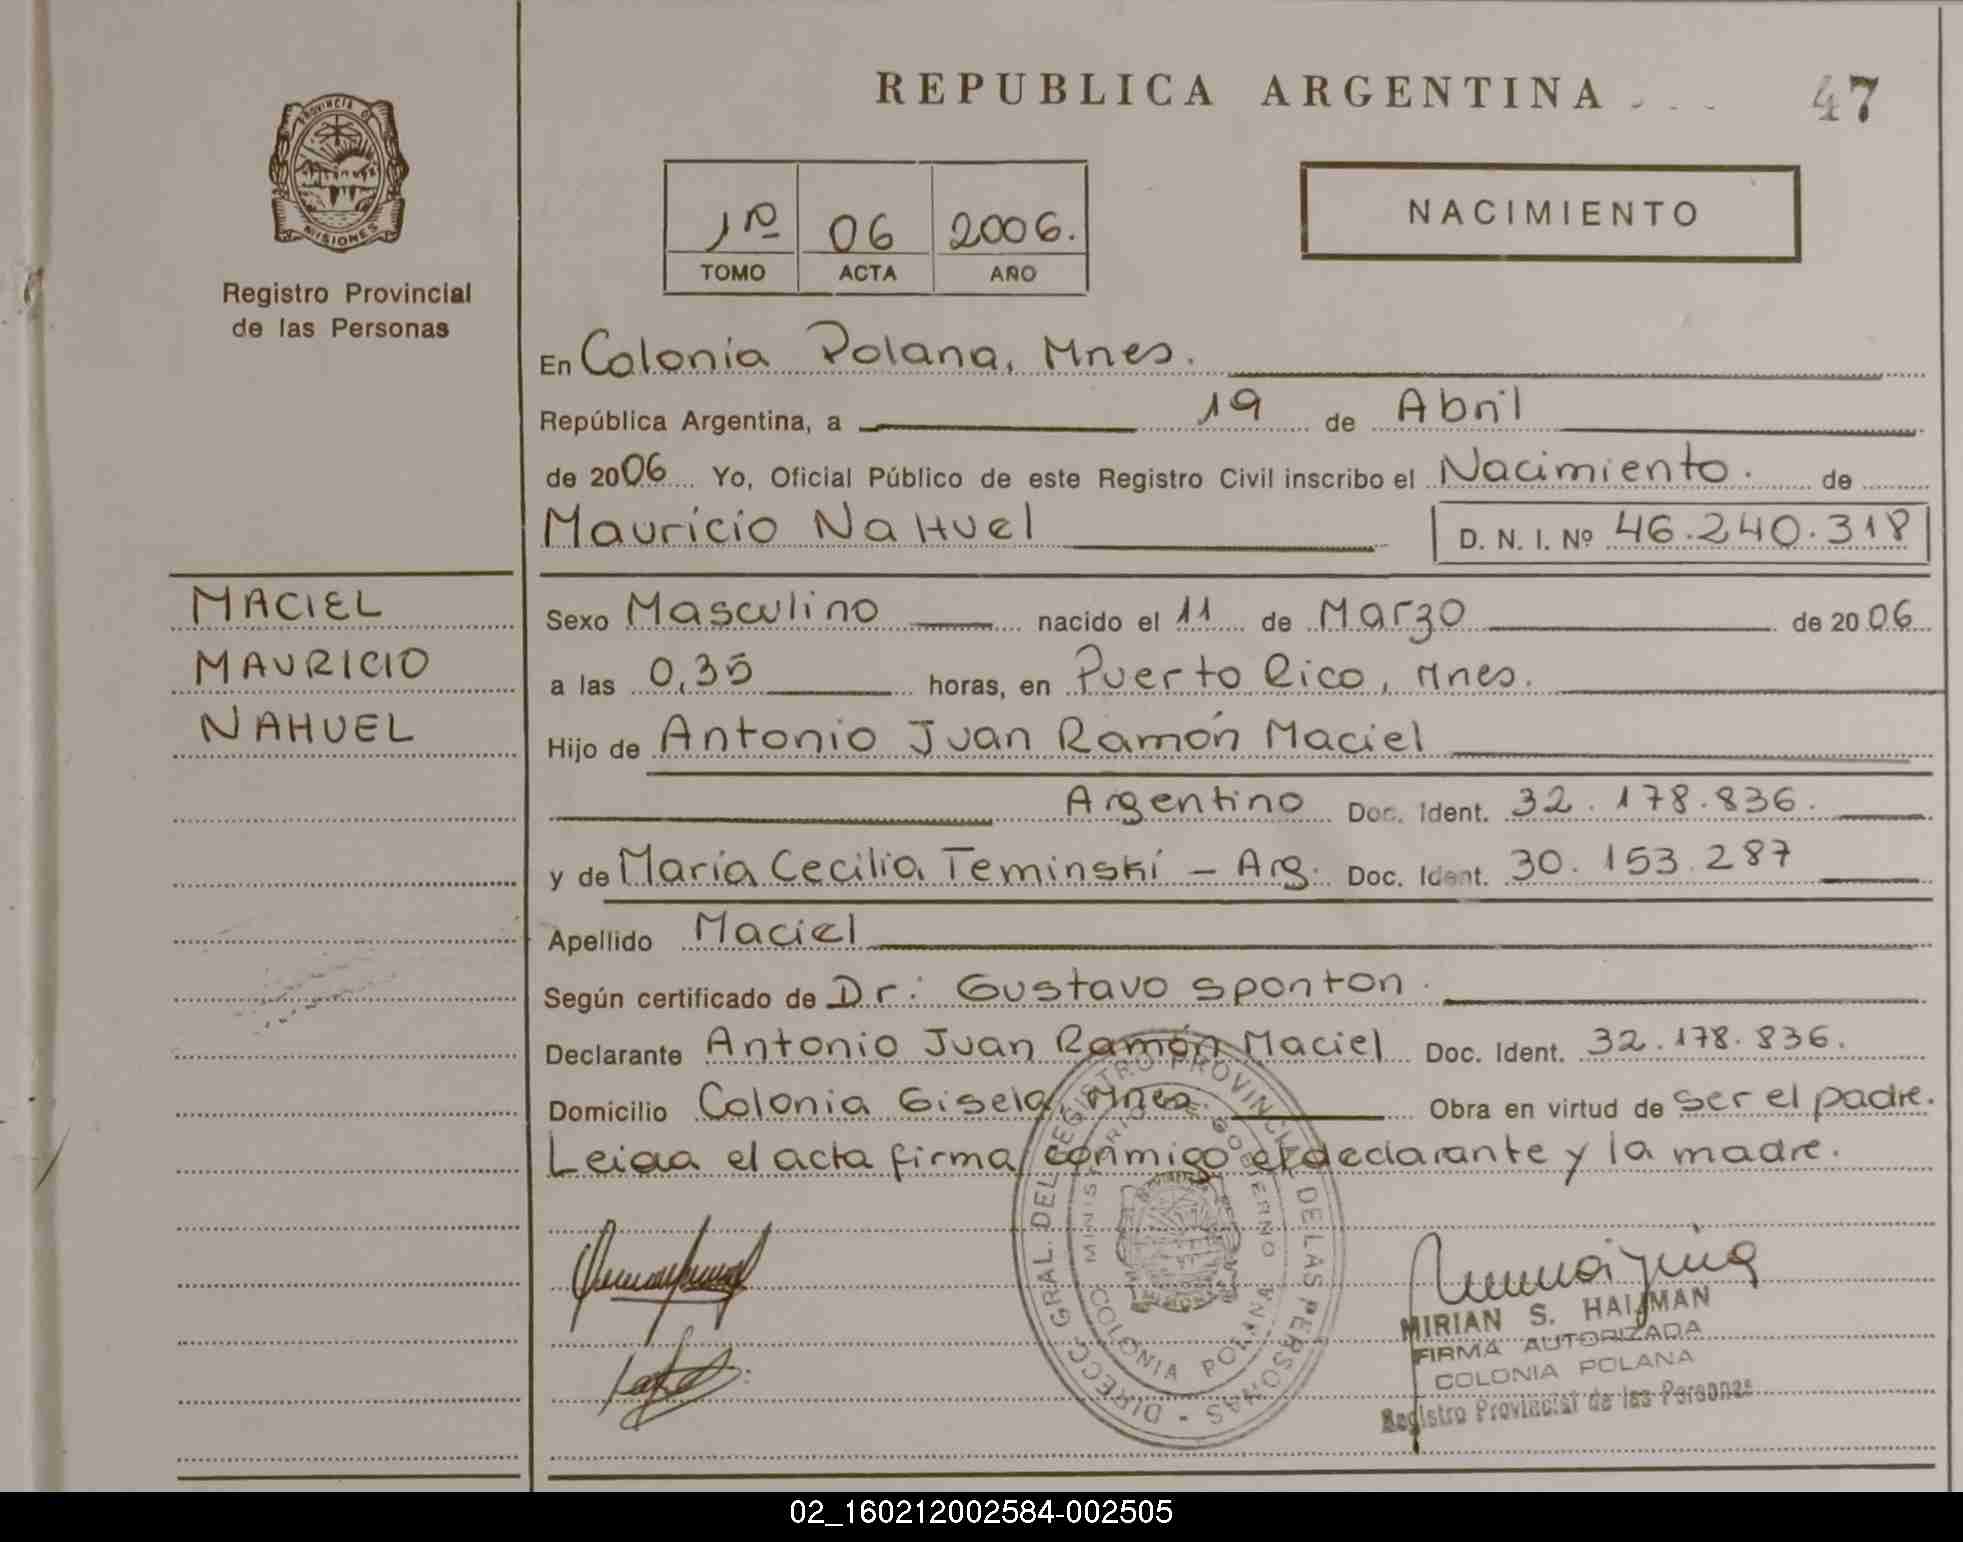 REPUBLICA ARGENTINA
47
PROVINCIA DE
MISIONES
Registro Provincial
de las Personas
1º 06 2006.
TOMO ACTA AÑO
NACIMIENTO
En Colonia Polana, Mnes.
República Argentina, a 19 de Abril
de 2006 Yo, Oficial Público de este Registro Civil inscribo el Nacimiento. de
Mauricio Nahuel D. N. I. Nº 46.240.318
MACIEL
MAURICIO
NAHUEL
Sexo Masculino nacido el 11 de Marzo de 2006
a las 0,35 horas, en Puerto Rico, Mnes.
Hijo de Antonio Juan Ramón Maciel
Argentino Doc. Ident. 32.178.836.
y de María Cecilia Teminski - Arg. Doc. Ident. 30.153.287
Apellido Maciel
Según certificado de Dr: Gustavo Sponton.
Declarante Antonio Juan Ramón Maciel Doc. Ident. 32.178.836.
Domicilio Colonia Gisela, Mnes. Obra en virtud de ser el padre.
Leida el acta firma conmigo el declarante y la madre.
DIRECC. GRAL. DEL REGISTRO PROVINCIAL DE LAS PERSONAS -
MINISTERIO DE GOBIERNO
COLONIA POLANA
MIRIAN S. HAIJMAN
FIRMA AUTORIZADA
COLONIA POLANA
Registro Provincial de las Personas
02_160212002584-002505